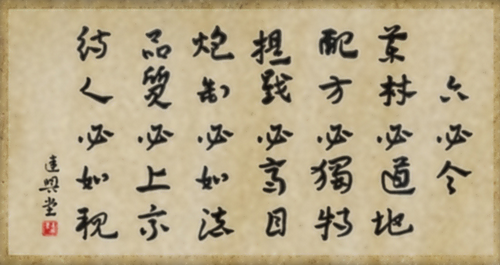 六必令
藥材必道地
配方必獨特
必高目
炮制必如法
品質必上
待人必如親
達興堂